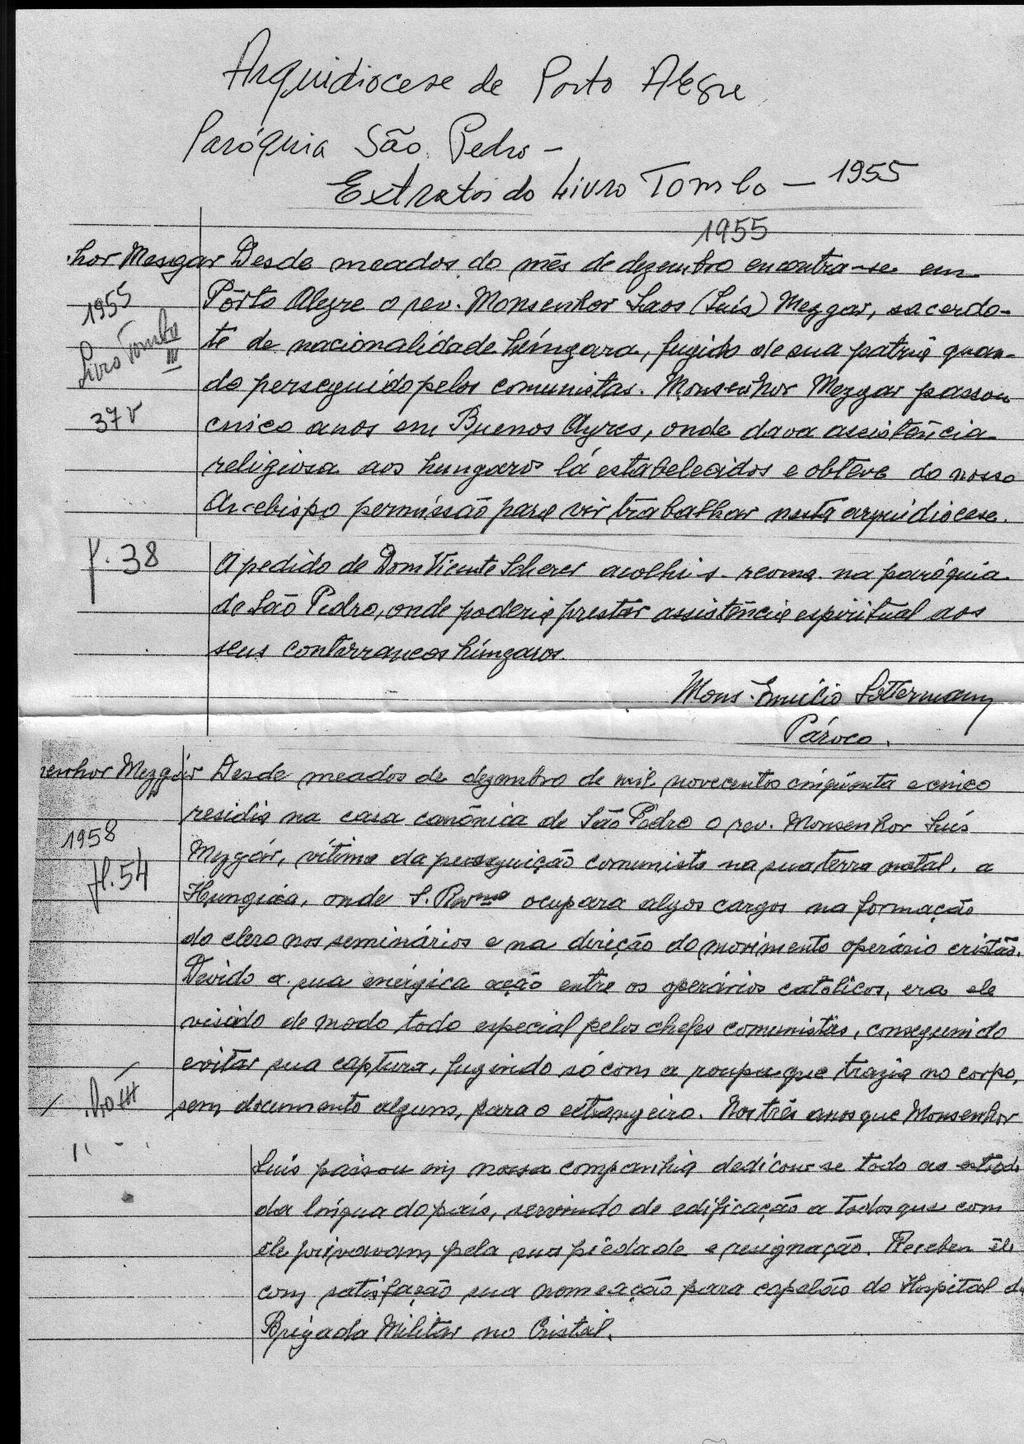 Arquidiocese de Porto Alegre
Paróquia São Pedro -
Extratos do Livro Tombo - 1955
1955
hor Mesgar Desde meados do mês de dezembro encontra-se em
1955 Pôrto Alegre o rev. Monsenhor Laos (Luís) Mezgar, sacerdo-
Livro Tombo III te de nacionalidade húngara, fugido de sua patria quan-
do perseguido pelos comunistas. Monsenhor Mezgar passou
37v cinco anos em Buenos Ayres, onde dava assistência
religiosa aos hungaros lá estabelecidos e obteve do nosso
Arcebispo permissão para vir trabalhar nesta arquidiocese.
f. 38 A pedido de Dom Vicente Scherer acolhi s. revma. na paróquia
de São Pedro, onde poderia prestar assistência espiritual aos
seus conterraneos húngaros.
Mons. Emílio Lottermann
Pároco.
senhor Mezgár Desde meados de dezembro de mil novecentos cinqüenta e cinco
residia na casa canônica de São Pedro o rev. Monsenhor Luís
1958 Mezgár, vítima da perseguição comunista na sua terra natal, a
fl. 54 Hungria, onde S. Revma ocupara altos cargos na formação
do clero nos seminários e na direção do movimento operário cristão.
Devido a sua enérgica ação entre os operários católicos, era ele
visado de modo todo especial pelos chefes comunistas, conseguindo
evitar sua captura, fugindo só com a roupa que trazia no corpo,
sem documento algum, para o estrangeiro. Nos três anos que Monsenhor
Luís passou em nossa companhia dedicou-se todo ao estudo
da língua do país, servindo de edificação a todos que com
êle privavam pela sua piedade e resignação. Recebeu êle
com satisfação sua nomeação para capelão do Hospital da
Brigada Militar no Cristal.